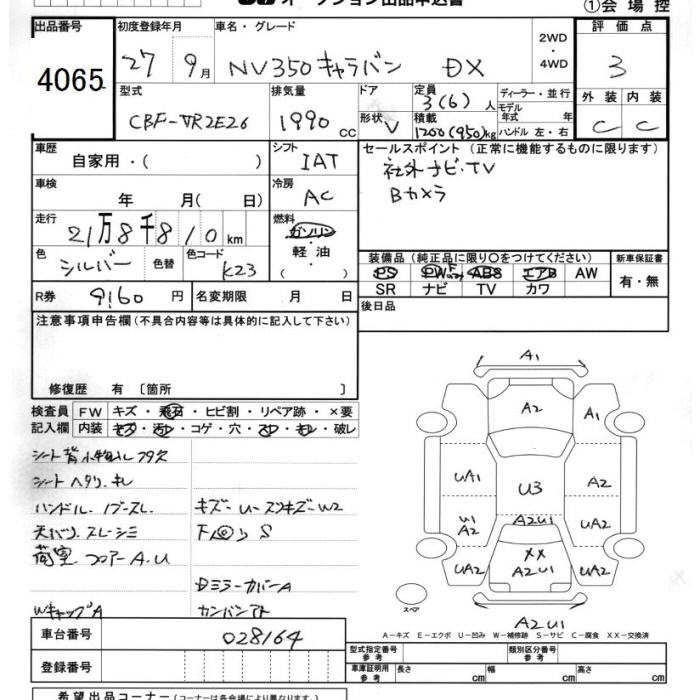 オークション出品申込書
①会場控
出品番号 4065
初度登録年月 27 9月
車名・グレード NV350キャラバン DX
2WD・4WD
評価点 3
型式 CBF-VR2E26
排気量 1990cc
ドア形状 V
定員 3(6)人
積載 1200(950)kg
ディーラー・並行
モデル年式 年
ハンドル 左・右
外装 C
内装 C
車歴 自家用・( )
シフト IAT
セールスポイント (正常に機能するものに限ります)
社外ナビ・TV
Bカメラ
車検 年 月(日 )
冷房 AC
走行 21万8千810km
燃料 ガソリン・軽油・( )
色 シルバー 色替
色コード K23
装備品 (純正品に限り○をつけてください)
新車保証書 有・無
PS PW ABS エアB AW
SR ナビ TV カワ
R券 9160円
名変期限 月 日
後日品
注意事項申告欄 (不具合内容等は具体的に記入して下さい)
修復歴 有 〔箇所 〕
検査員記入欄
FW キズ・飛石・ヒビ割・リペア跡・×要
内装 キズ・汚レ・コゲ・穴・スレ・キレ・破レ
シート背小物ムレフタ欠
シートヘタリ.キレ
ハンドル.ノブースレ.
天バリ.スレーシミ
荷室.フロアーA.U
WキャップA
キズーUースリキズーW2
DミラーカバーA
カンバンアト
A1
A2
A1
UA1
U3
A2
U1
A2
A2U1
UA2
UA2
XX
A2U1
UA2
A2U1
スペア
A-キズ E-エクボ U-凹み W-補修跡 S-サビ C-腐食 XX-交換済
車台番号 028164
登録番号
型式指定番号 参考
類別区分番号 参考
車庫証明用 参考 長さ cm 幅 cm 高さ cm
希望出品コーナー (コーナーは各会場により異なります。)